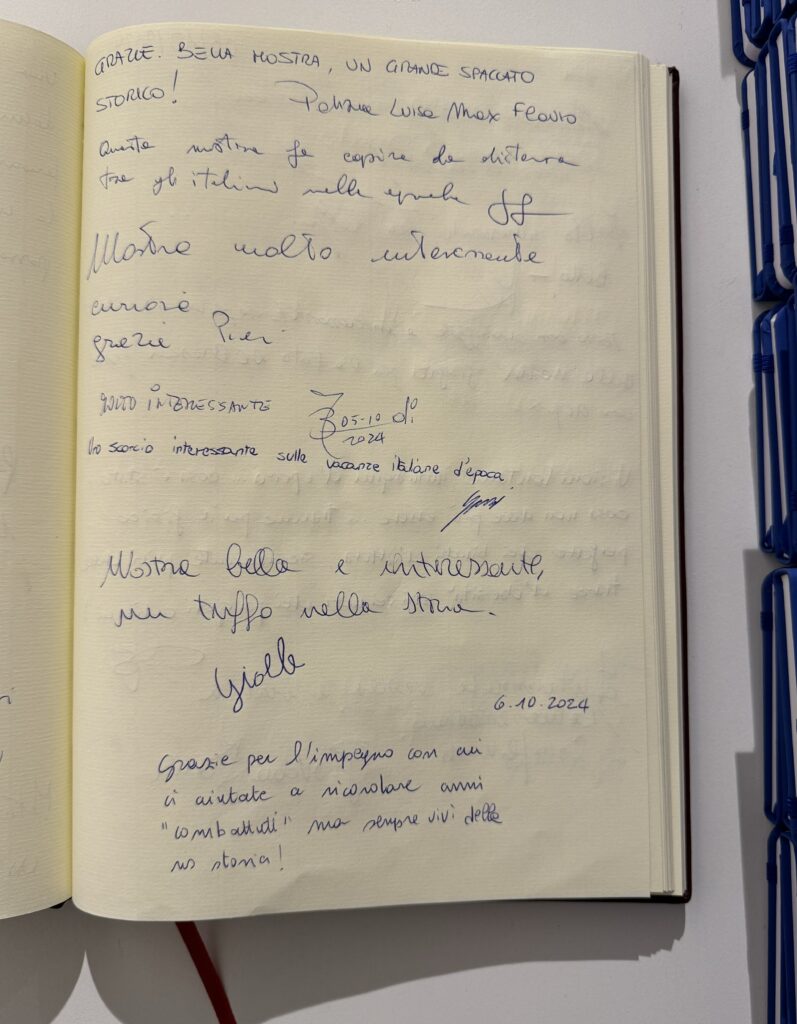 GRAZIE. BELLA MOSTRA, UN GRANDE SPACCATO
STORICO!
Luisa Max Flavio
Questa mostra fa capire la distanza
tra gli italiani nelle epoche
Mostra molto interessante
curiosa
grazie Pier
MOLTO INTERESSANTE
05-10
2024
Uno scorcio interessante sulle vacanze italiane d'epoca
Mostra bella e interessante,
un tuffo nella storia.
6.10.2024
Grazie per l'impegno con cui
ci aiutate a ricordare anni
"combattuti" ma sempre vivi della
ns storia!